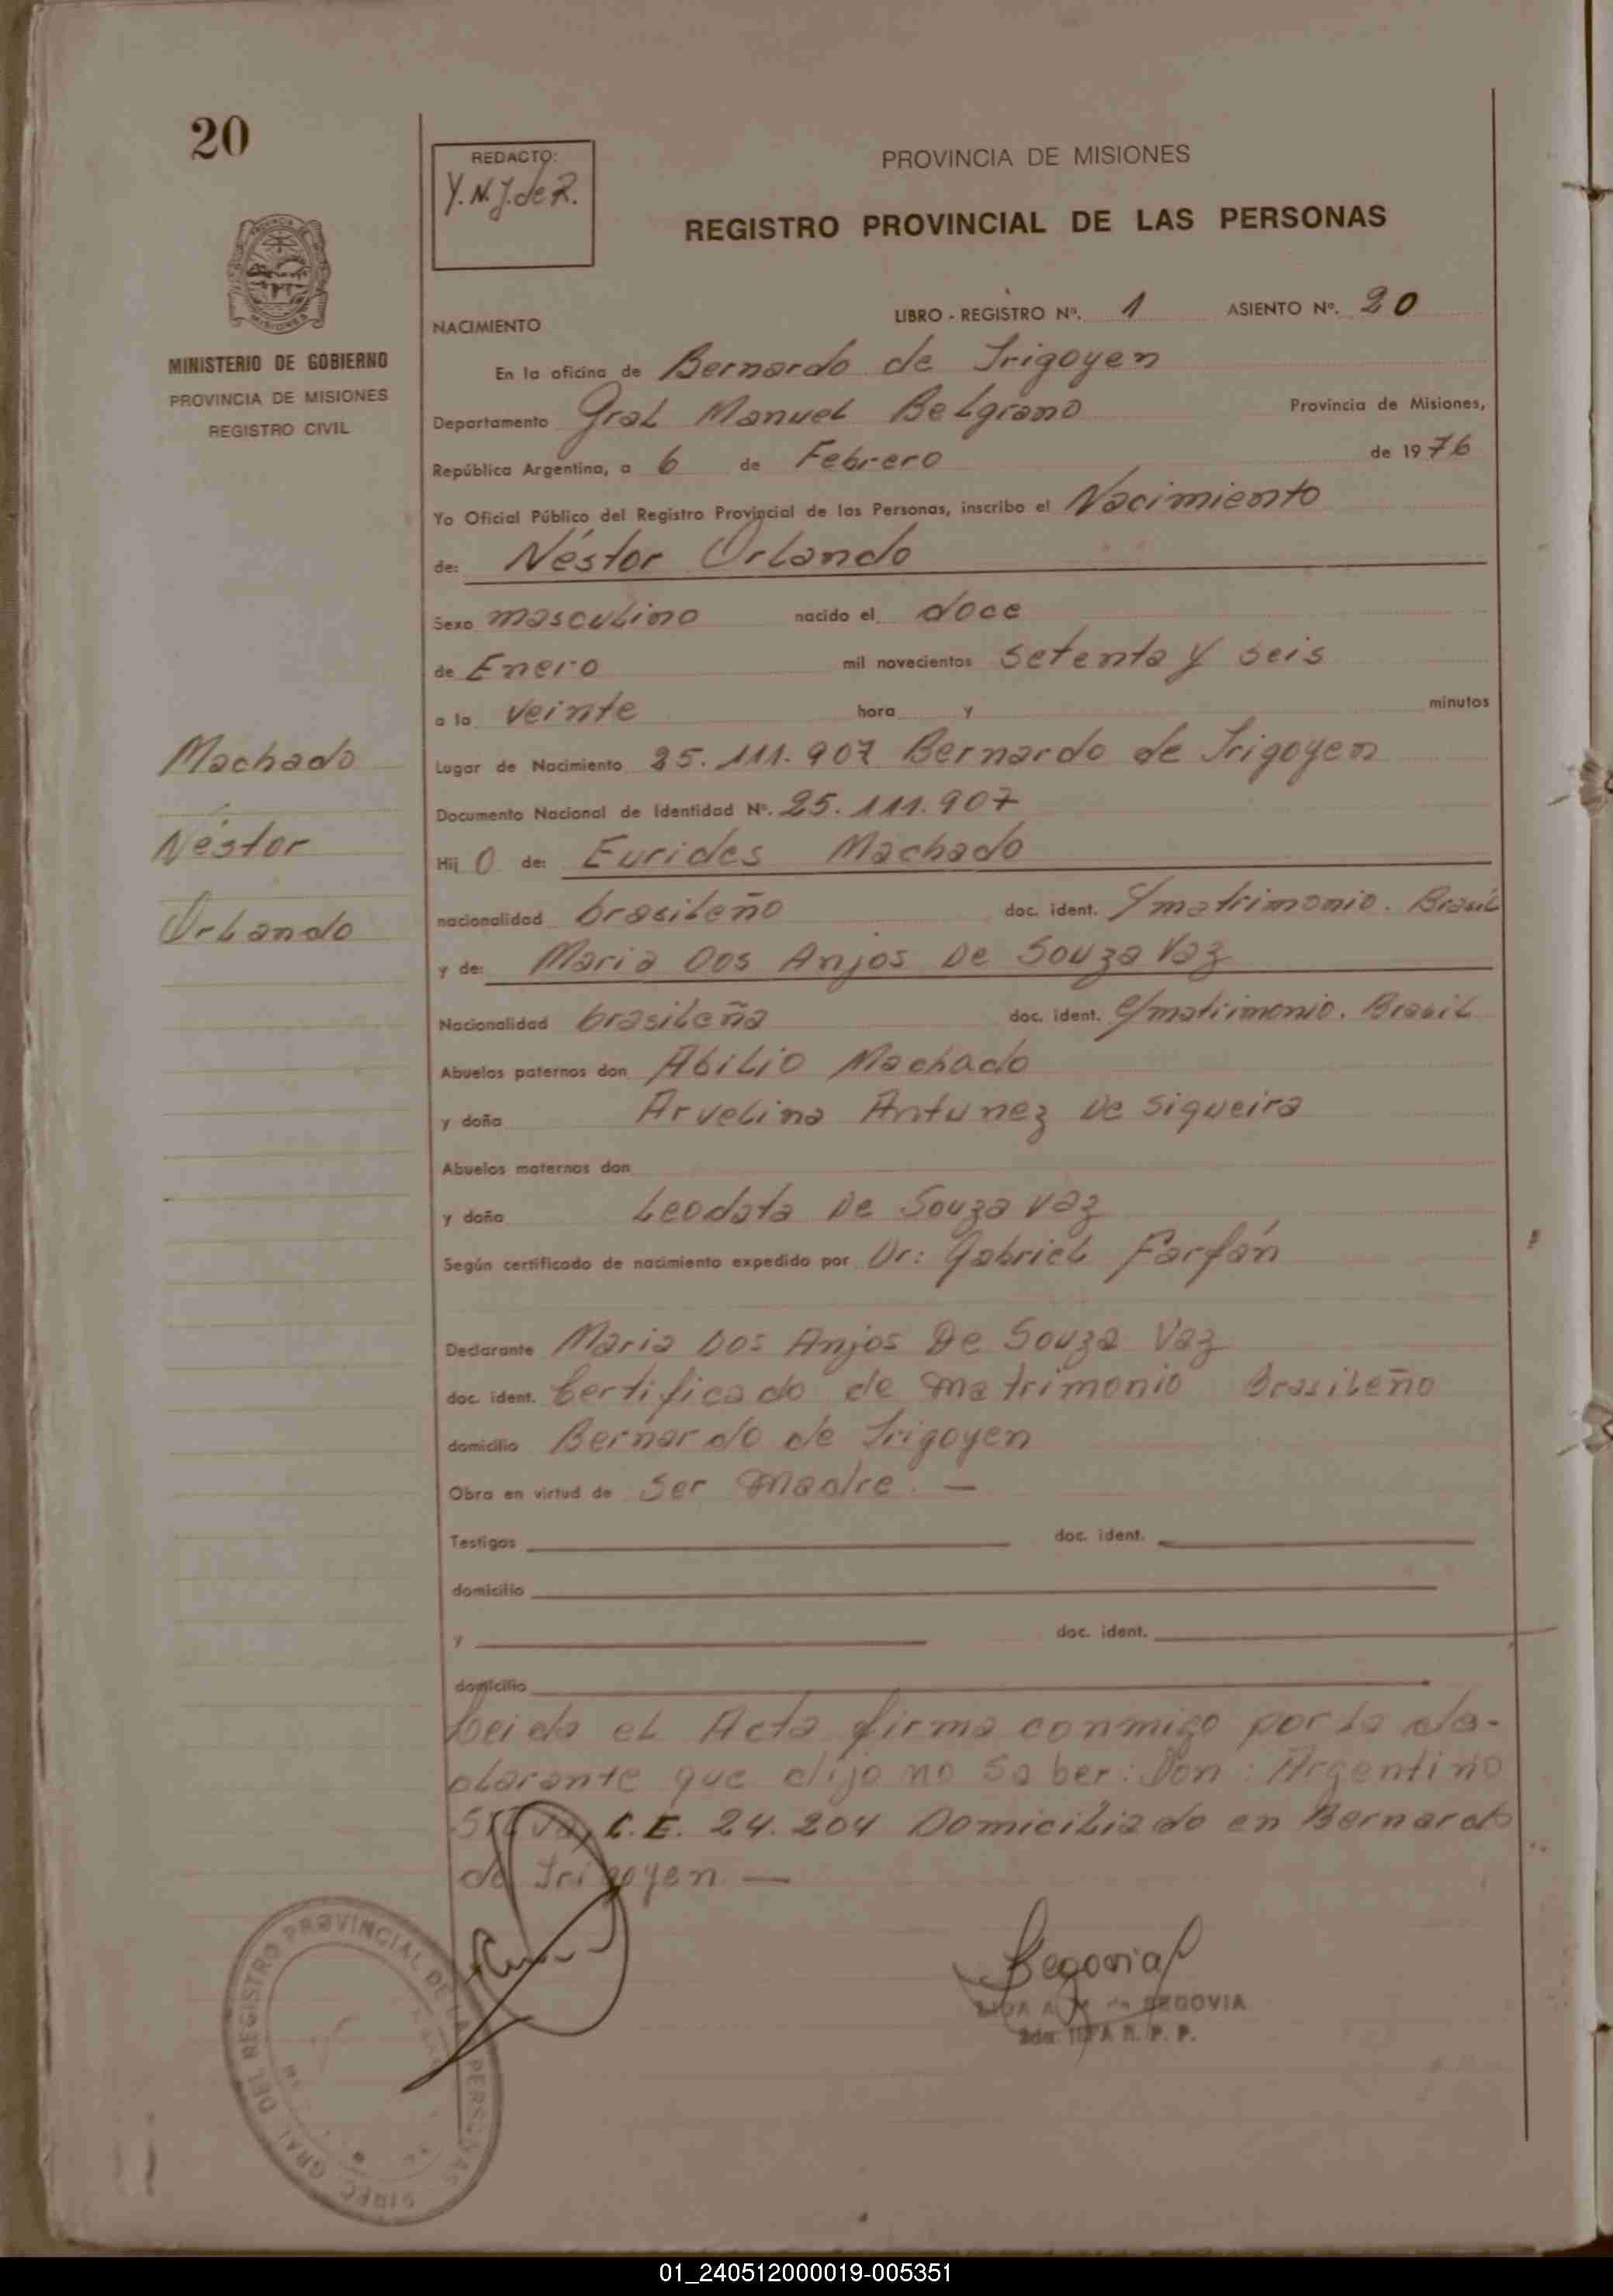 20
REDACTO:
Y.N.J. de R.
PROVINCIA DE MISIONES
REGISTRO PROVINCIAL DE LAS PERSONAS
MINISTERIO DE GOBIERNO
PROVINCIA DE MISIONES
REGISTRO CIVIL
NACIMIENTO LIBRO - REGISTRO Nº. 1 ASIENTO Nº. 20
En la oficina de Bernardo de Irigoyen
Departamento Gral Manuel Belgrano Provincia de Misiones,
República Argentina, a 6 de Febrero de 1976
Yo Oficial Público del Registro Provincial de las Personas, inscribo el Nacimiento
de: Néstor Orlando
Sexo masculino nacido el doce
de Enero mil novecientos setenta y seis
a la veinte hora y minutos
Machado
Néstor
Orlando
Lugar de Nacimiento 25.111.907 Bernardo de Irigoyen
Documento Nacional de Identidad Nº. 25.111.907
Hij o de: Eurides Machado
nacionalidad brasileño doc. ident. C/matrimonio. Brasil
y de: Maria Dos Anjos De Souza Vaz
Nacionalidad brasileña doc. ident. C/matrimonio. Brasil
Abuelos paternos don Abilio Machado
y doña Arvelina Antunez De Siqueira
Abuelos maternos don
y doña Leodata De Souza Vaz
Según certificado de nacimiento expedido por Dr: Gabriel Farfán
Declarante Maria Dos Anjos De Souza Vaz
doc. ident. Certificado de matrimonio Brasileño
domicilio Bernardo de Irigoyen
Obra en virtud de ser madre. —
Testigos doc. ident.
domicilio
y doc. ident.
domicilio
Leida el Acta firma conmigo por la de-
clarante que dijo no saber: Don: Argentino
Silva, C.E. 24.204 Domiciliado en Bernardo
de Irigoyen —
Segovia
SEGOVIA
2da. JEFA R. P. P.
DIREC. GRAL. DEL REGISTRO PROVINCIAL DE LAS PERSONAS
01_240512000019-005351